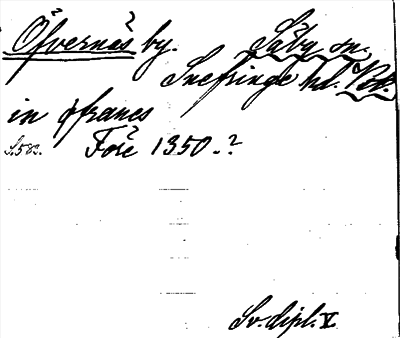 Öfvernäs by. Säby sn.
Snefringe hd. Vstm.
in ofranes
S. 582. Före 1350.?
Sv. dipl. V